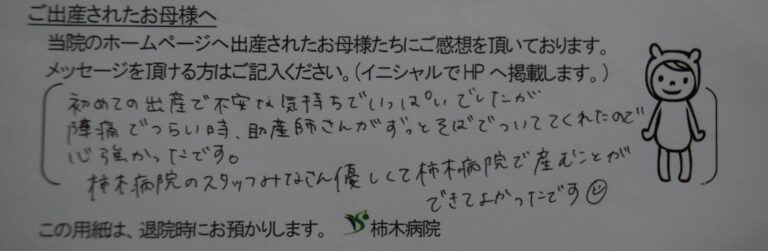 ご出産されたお母様へ
当院のホームページへ出産されたお母様たちにご感想を頂いております。
メッセージを頂ける方はご記入ください。(イニシャルでHPへ掲載します。)
初めての出産で不安な気持ちでいっぱいでしたが
陣痛でつらい時、助産師さんがずっとそばでついててくれたので
心強かったです。
柿木病院のスタッフみなさん優しくて柿木病院で産むことが
できてよかったです☺
この用紙は、退院時にお預かりします。 柿木病院